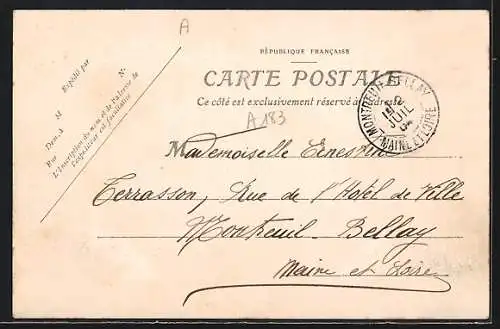 A
RÉPUBLIQUE FRANÇAISE
CARTE POSTALE
Ce côté est exclusivement réservé à l'adresse
A 183
Expédié par
M
N°
Dem. à
Rue
L'Inscription du nom et de l'adresse de
l'expéditeur est facultative
MONTREUIL-BELLAY
2
JUIL
04
MAINE ET LOIRE
Mademoiselle
Terrasson, Rue de l'Hotel de Ville
Montreuil-Bellay
Maine et Loire